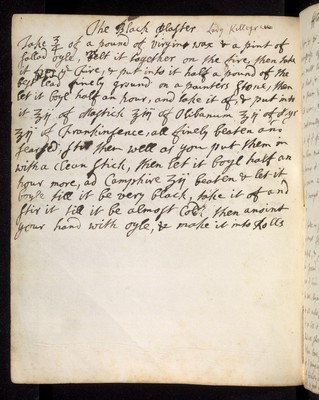 The Black Plaster Lady Killegrew
Take ¾ of a pound of virgins wax & a pint of
sallad oyle, Melt it together on the fire, then take
it of the fire, & put into it half a pound of the
best lead finely ground on a painters stone, then
let it boyl half an hour, and take it of, & put into
it ʒij of Mastick ʒiij of Olibanum ʒij of
ʒij of Frankinsence, all finely beaten and
searsed, stir them well as you put them in
with a clean stick, then let it boyl half an
hour more, ad Camphire ʒij beaten & let it
boyle till it be very black, take it of and
stir it till it be almost cold, then anoint
your hand with oyle, & make it into Rolls